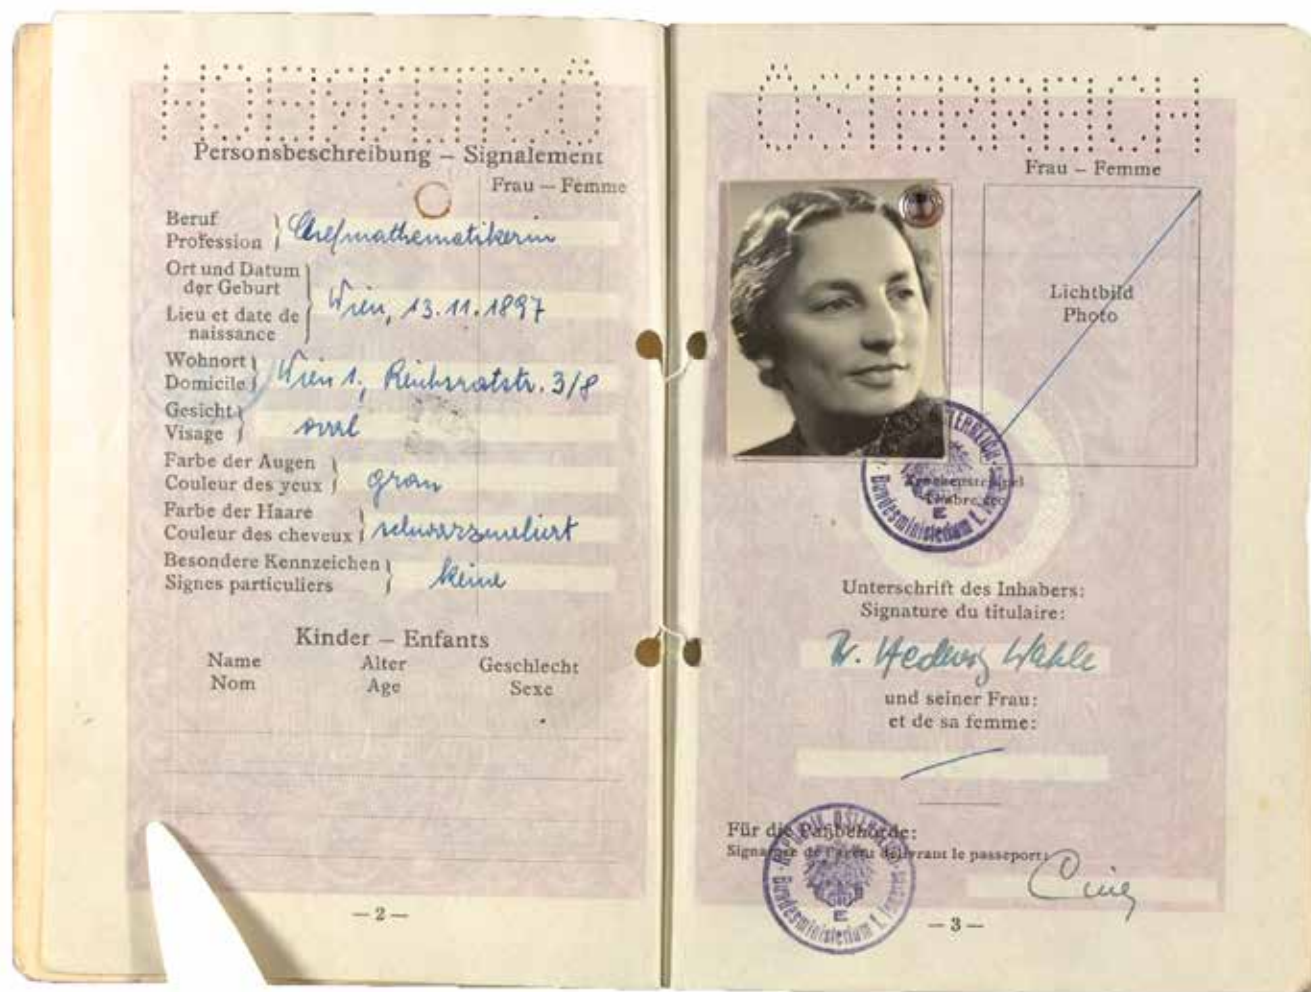 ÖSTERREICH
Personsbeschreibung – Signalement
Frau – Femme
Beruf
Profession
Chefmathematikerin
Ort und Datum
der Geburt
Lieu et date de
naissance
Wien, 13.11.1897
Wohnort
Domicile
Wien 1., Reichsratstr. 3/8
Gesicht
Visage
oval
Farbe der Augen
Couleur des yeux
grau
Farbe der Haare
Couleur des cheveux
schwarzmeliert
Besondere Kennzeichen
Signes particuliers
keine
Kinder – Enfants
Name Alter Geschlecht
Nom Age Sexe
– 2 –
ÖSTERREICH
Frau – Femme
Lichtbild
Photo
Bundesministerium f.
E
Unterschrift des Inhabers:
Signature du titulaire:
Dr. Hedwig Wahle
und seiner Frau:
et de sa femme:
Für die Paßbehörde:
Signature de l'agent délivrant le passeport:
REPUBLIK ÖSTERREICH
Bundesministerium f. Inneres
E
– 3 –